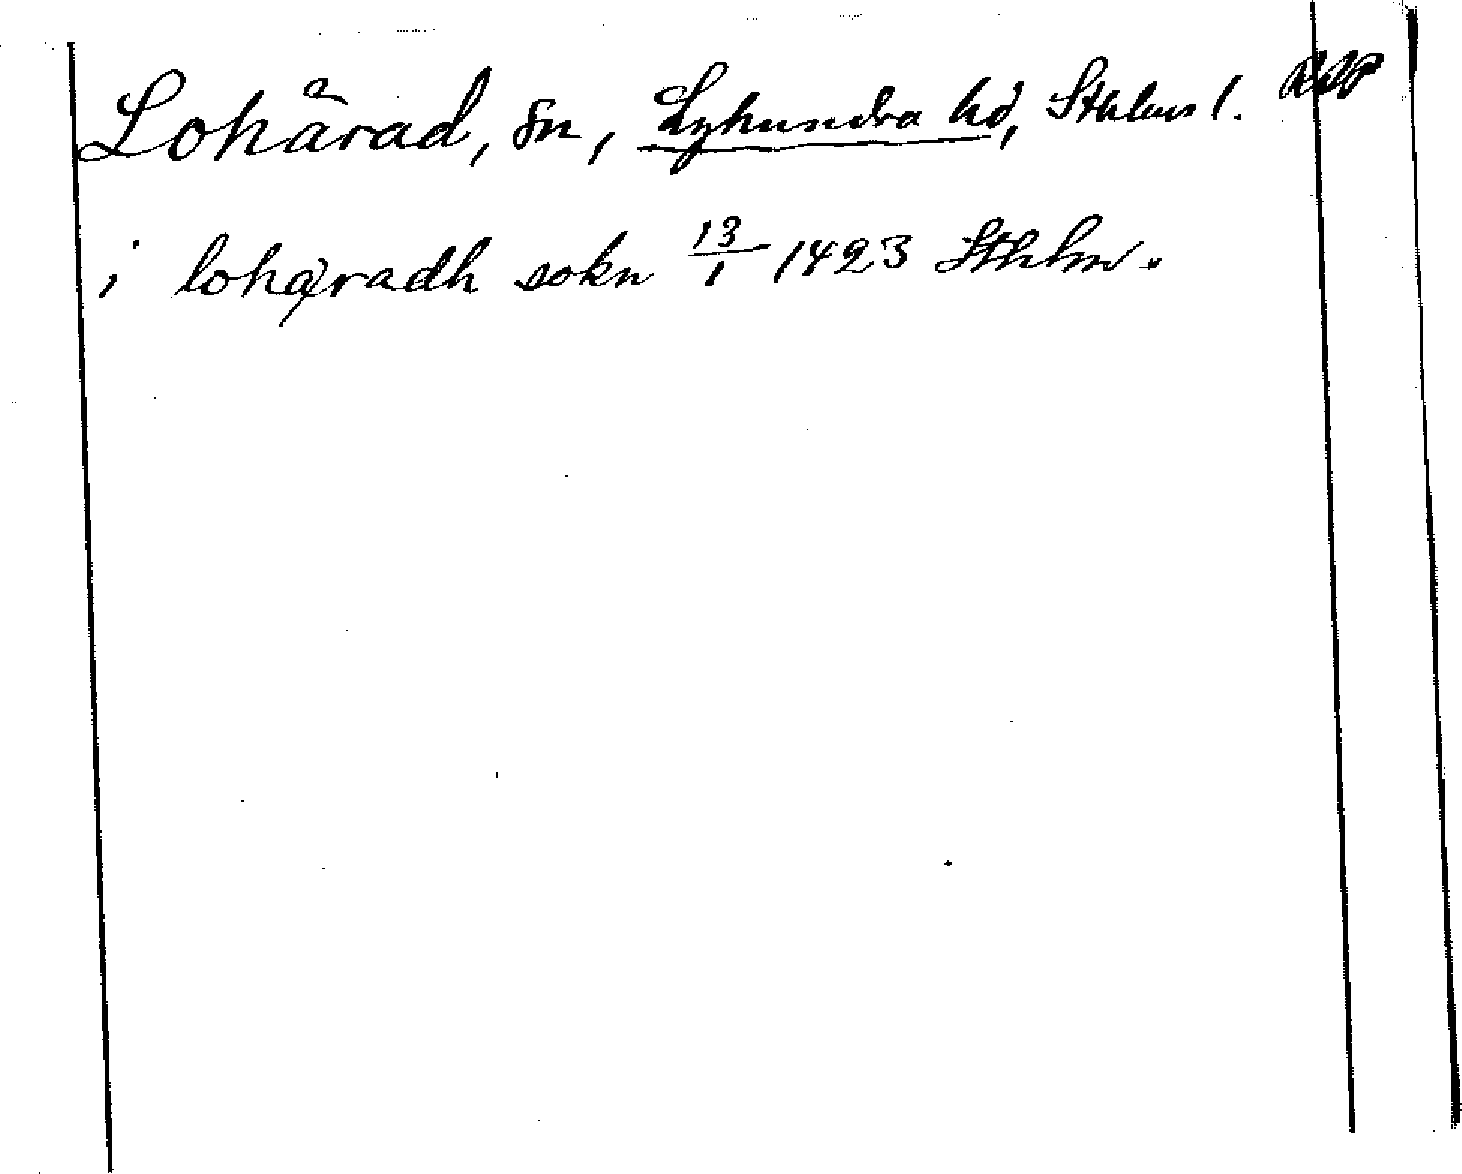 Lohärad, sn, Lyhundra hd, Sthlms l. RAP
i lohæradh sokn 13/1 1423 Sthlm.